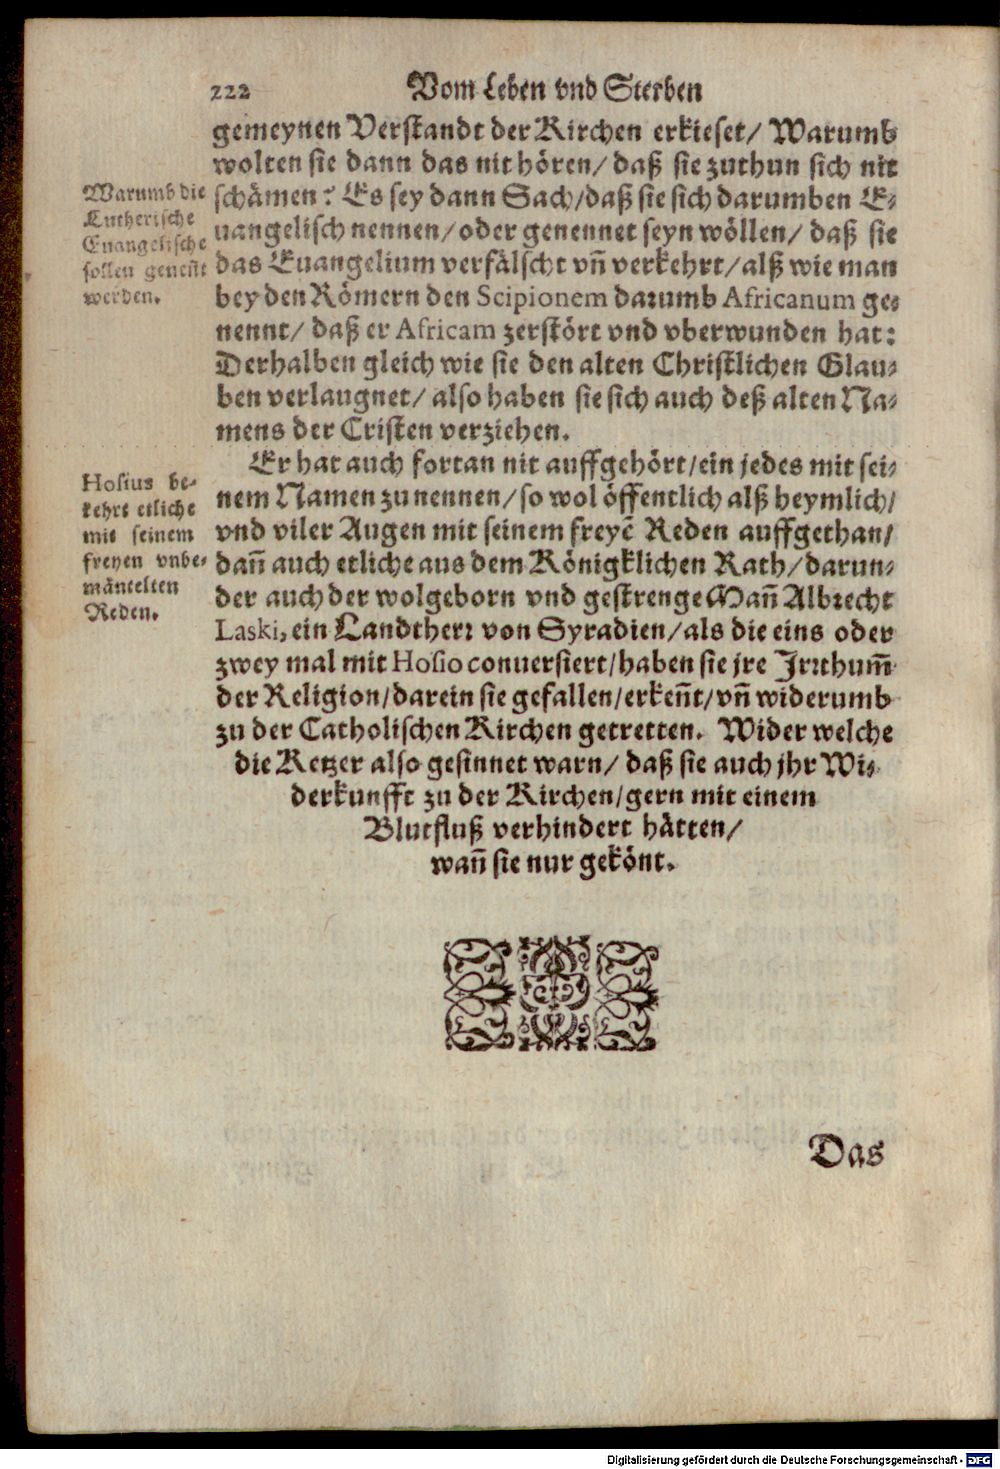 222 Vom Leben vnd Sterben
gemeynen Verstandt der Kirchen erkieset/ Warumb
wolten sie dann das nit hören/ daß sie zuthun sich nit
schämen? Es sey dann Sach/daß sie sich darumben E⸗
uangelisch nennen/oder genennet seyn wöllen/ daß sie
das Euangelium verfälscht vñ verkehrt/alß wie man
bey den Römern den Scipionem darumb Africanum ge⸗
nennt/ daß er Africam zerstört vnd vberwunden hat:
Derhalben gleich wie sie den alten Christlichen Glau⸗
ben verlaugnet/ also haben sie sich auch deß alten Na⸗
mens der Cristen verziehen.
Warumb die
Lutherische
Euangelische
sollen geneñt
werden.
Er hat auch fortan nit auffgehört/ein jedes mit sei⸗
nem Namen zu nennen/so wol öffentlich alß heymlich/
vnd viler Augen mit seinem freyē Reden auffgethan/
dañ auch etliche aus dem Königklichen Rath/darun⸗
der auch der wolgeborn vnd gestrenge Mañ Albrecht
Laski, ein Landtherr von Syradien/als die eins oder
zwey mal mit Hosio conuersiert/haben sie jre Jrrthum̃
der Religion/darein sie gefallen/erkeñt/vñ widerumb
zu der Catholischen Kirchen getretten. Wider welche
die Ketzer also gesinnet warn/ daß sie auch jhr Wi⸗
derkunfft zu der Kirchen/gern mit einem
Blutfluß verhindert hätten/
wañ sie nur gekönt.
Hosius be⸗
kehrt etliche
mit seinem
freyen vnbe⸗
mäntelten
Reden.
Das
Digitalisierung gefördert durch die Deutsche Forschungsgemeinschaft - DFG